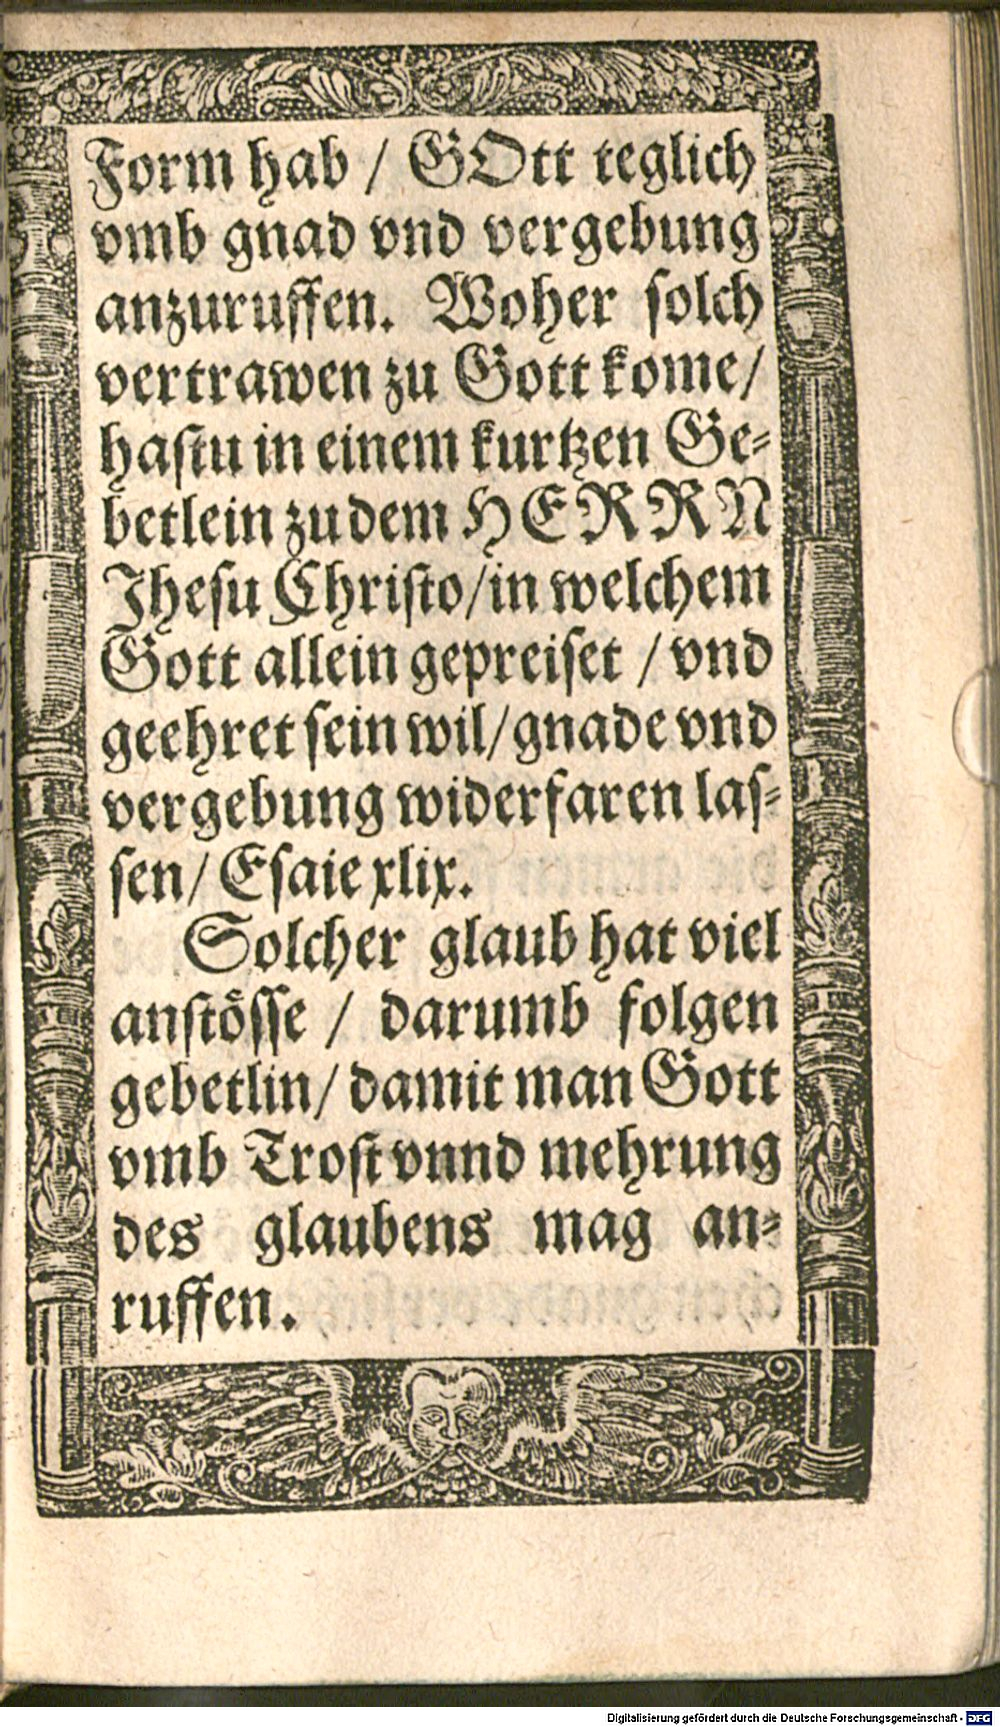 Form hab / GOtt teglich
vmb gnad vnd vergebung
anzuruffen. Woher solch
vertrawen zu Gott kome/
hastu in einem kurtzen Ge-
betlein zu dem HERRN
Jhesu Christo/in welchem
Gott allein gepreiset / vnd
geehret sein wil/gnade vnd
vergebung widerfaren las-
sen/ Esaie xlix.
Solcher glaub hat viel
anstösse / darumb folgen
gebetlin/ damit man Gott
vmb Trost vnnd mehrung
des glaubens mag an-
ruffen.
Digitalisierung gefördert durch die Deutsche Forschungsgemeinschaft - DFG